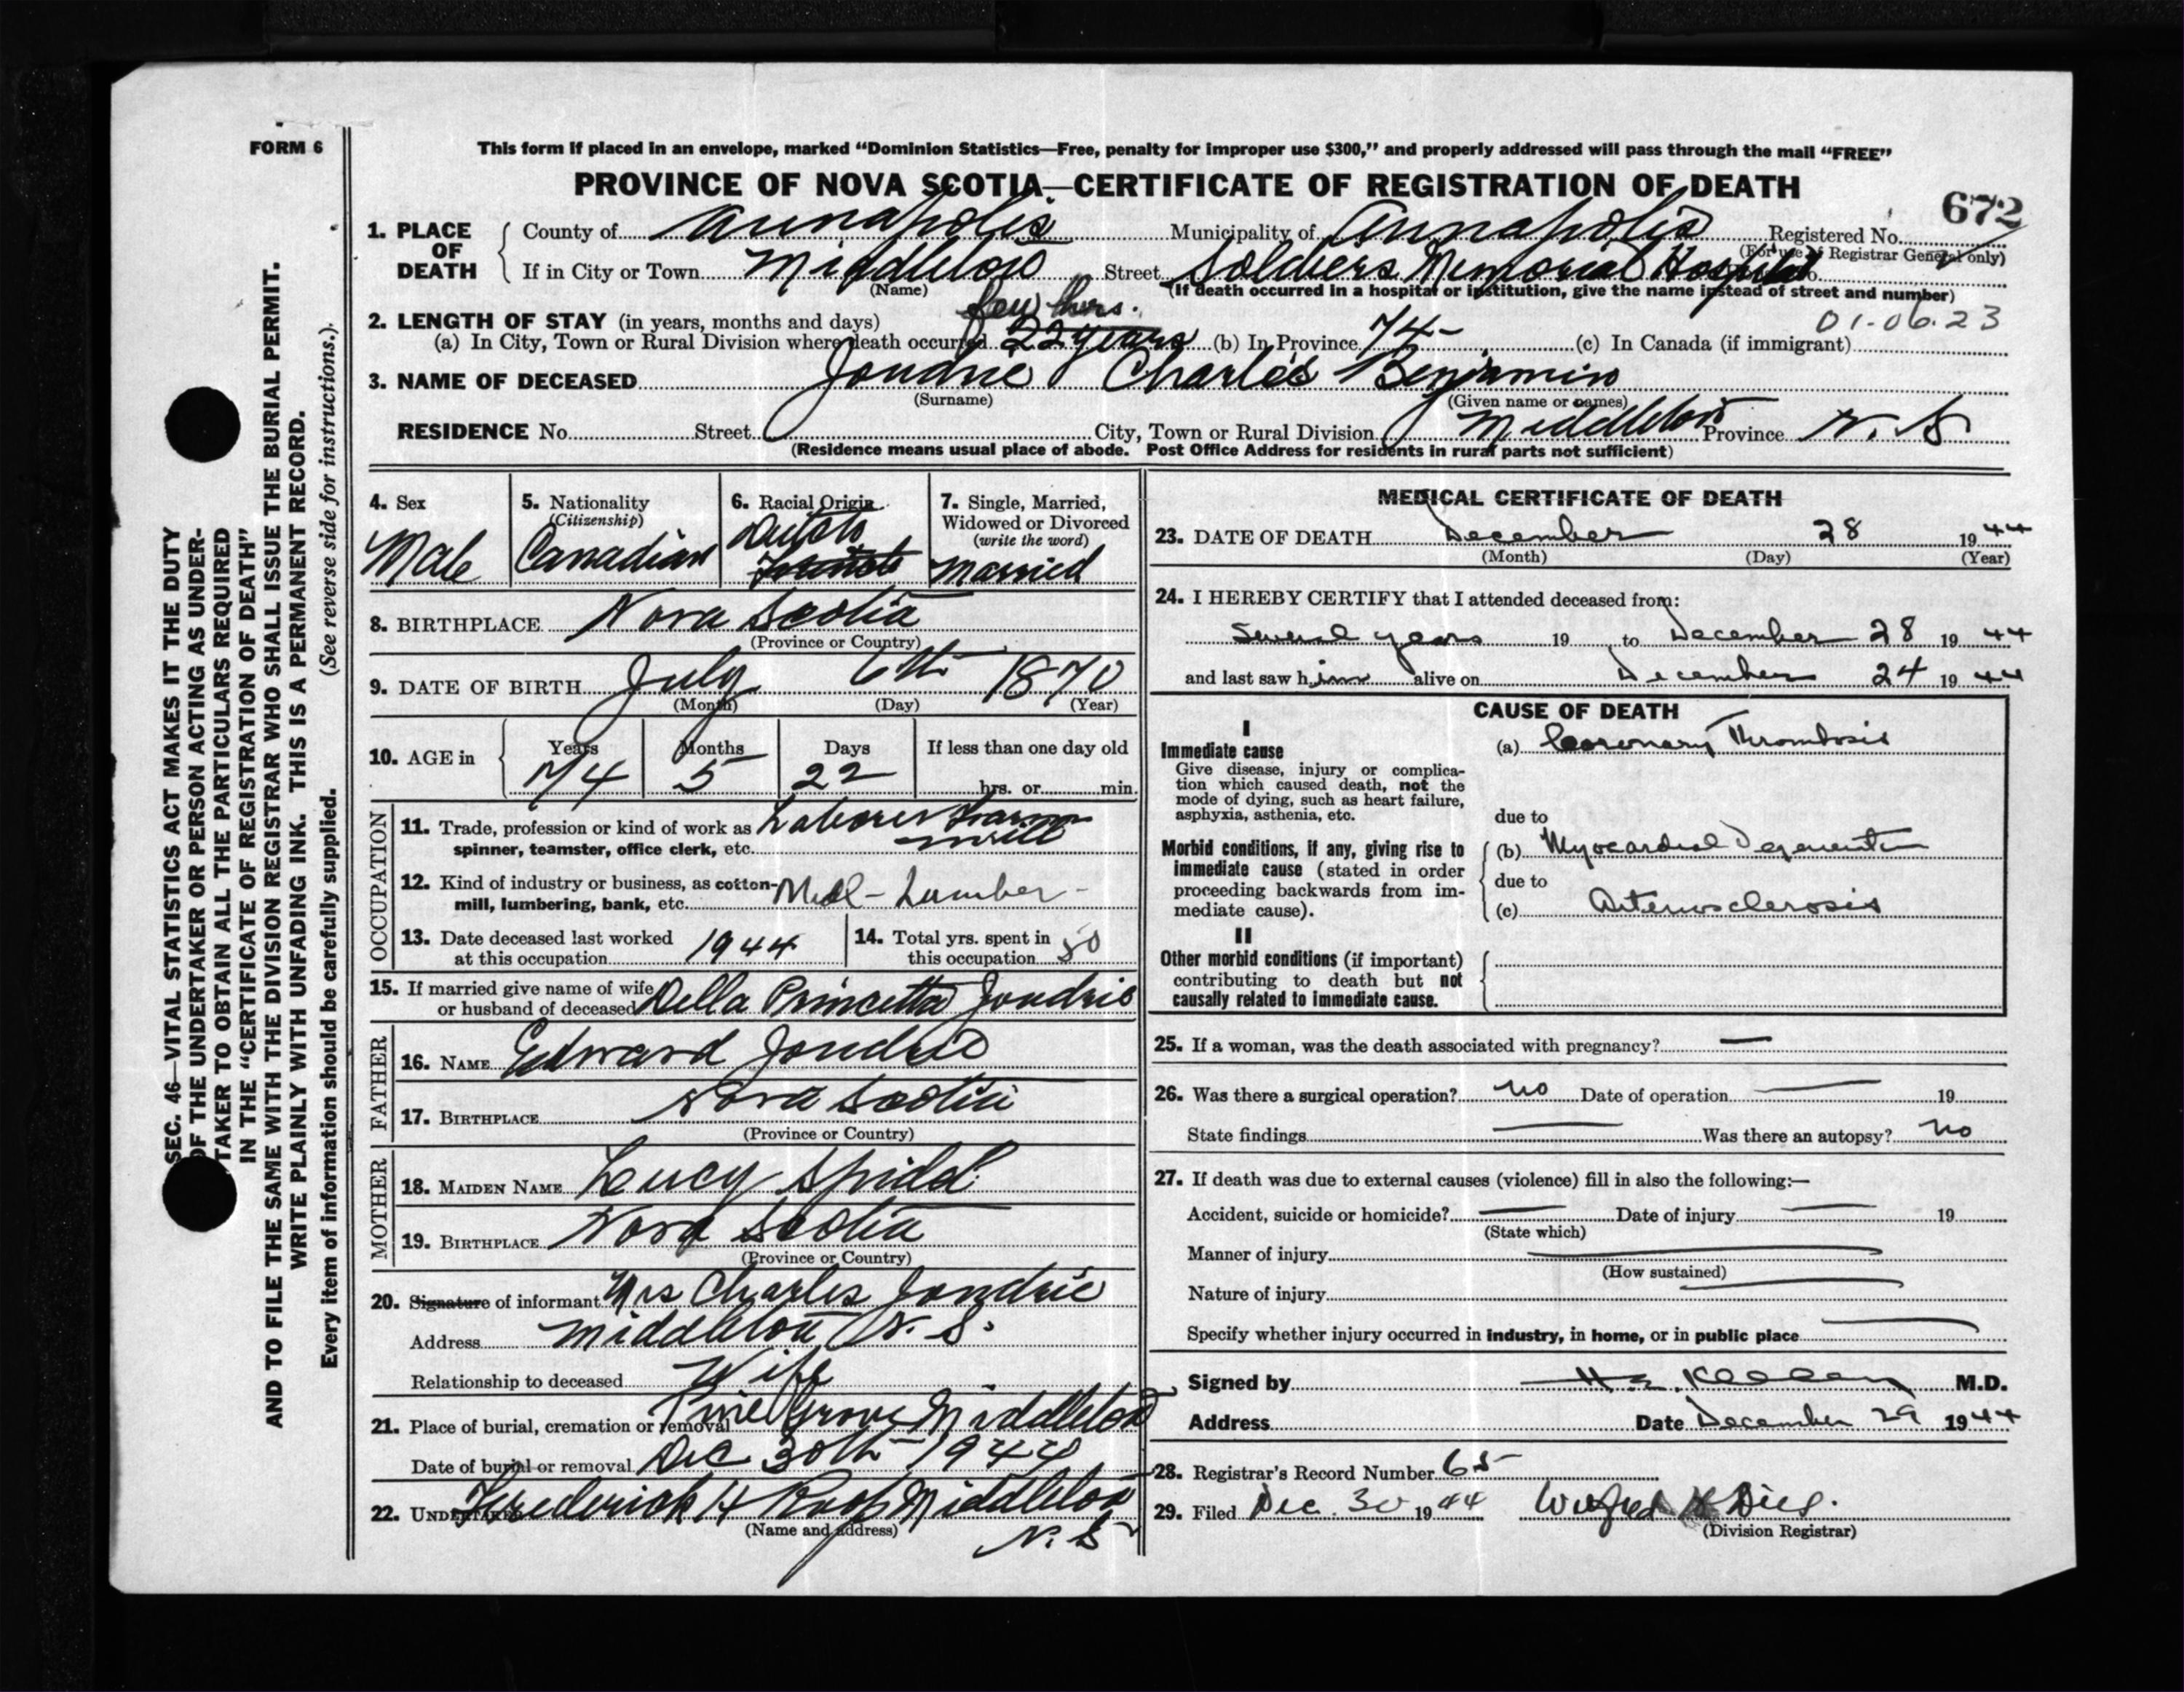 FORM 6
This form if placed in an envelope, marked “Dominion Statistics—Free, penalty for improper use $300,” and properly addressed will pass through the mail “FREE”
PROVINCE OF NOVA SCOTIA—CERTIFICATE OF REGISTRATION OF DEATH
672
1. PLACE OF DEATH County of Annapolis Municipality of Annapolis Registered No.
(For use of Registrar General only)
If in City or Town Middleton Street Soldiers Memorial Hospital No.
(Name) (If death occurred in a hospital or institution, give the name instead of street and number)
few hrs. 01-06.23
2. LENGTH OF STAY (in years, months and days)
(a) In City, Town or Rural Division where death occurred 22 years (b) In Province 74- (c) In Canada (if immigrant)
3. NAME OF DECEASED Joudrie Charles Benjamin
(Surname) (Given name or names)
RESIDENCE No. Street City, Town or Rural Division Middleton Province N. S
(Residence means usual place of abode. Post Office Address for residents in rural parts not sufficient)
4. Sex Male
5. Nationality (Citizenship) Canadian
6. Racial Origin Dutch
7. Single, Married, Widowed or Divorced (write the word) Married
8. BIRTHPLACE Nova Scotia
(Province or Country)
9. DATE OF BIRTH July 6th 1870
(Month) (Day) (Year)
10. AGE in Years 74 Months 5 Days 22 If less than one day old
hrs. or min.
OCCUPATION
11. Trade, profession or kind of work as Laborer
spinner, teamster, office clerk, etc. mill
12. Kind of industry or business, as cotton-
mill, lumbering, bank, etc. Mill - Lumber -
13. Date deceased last worked at this occupation 1944
14. Total yrs. spent in this occupation 50
15. If married give name of wife or husband of deceased Della Princetta Joudrie
FATHER
16. NAME Edward Joudrie
17. BIRTHPLACE Nova Scotia
(Province or Country)
MOTHER
18. MAIDEN NAME Lucy Spidd
19. BIRTHPLACE Nova Scotia
(Province or Country)
20. Signature of informant Mrs Charles Joudrie
Address Middleton N. S.
Relationship to deceased Wife
21. Place of burial, cremation or removal Pine Grove Middleton
Date of burial or removal Dec 30th 1944
22. UNDERTAKER Frederick H Roop Middleton
(Name and address) N. S
MEDICAL CERTIFICATE OF DEATH
23. DATE OF DEATH December 28 1944
(Month) (Day) (Year)
24. I HEREBY CERTIFY that I attended deceased from:
Several years 19 to December 28 19 44
and last saw him alive on December 24 19 44
CAUSE OF DEATH
I
Immediate cause (a) Coronary Thrombosis
Give disease, injury or complica-
tion which caused death, not the
mode of dying, such as heart failure,
asphyxia, asthenia, etc. due to
Morbid conditions, if any, giving rise to (b) Myocardial Degeneration
immediate cause (stated in order
proceeding backwards from im- due to
mediate cause). (c) Arteriosclerosis
II
Other morbid conditions (if important)
contributing to death but not
causally related to immediate cause.
25. If a woman, was the death associated with pregnancy? —
26. Was there a surgical operation? no Date of operation — 19
State findings — Was there an autopsy? no
27. If death was due to external causes (violence) fill in also the following:—
Accident, suicide or homicide? — Date of injury — 19
(State which)
Manner of injury —
(How sustained)
Nature of injury —
Specify whether injury occurred in industry, in home, or in public place —
Signed by M.D.
Address Date December 29 1944
28. Registrar's Record Number 65
29. Filed Dec. 30 1944 Wilfred
(Division Registrar)
SEC. 46—VITAL STATISTICS ACT MAKES IT THE DUTY
OF THE UNDERTAKER OR PERSON ACTING AS UNDER-
TAKER TO OBTAIN ALL THE PARTICULARS REQUIRED
IN THE “CERTIFICATE OF REGISTRATION OF DEATH”
AND TO FILE THE SAME WITH THE DIVISION REGISTRAR WHO SHALL ISSUE THE BURIAL PERMIT.
WRITE PLAINLY WITH UNFADING INK. THIS IS A PERMANENT RECORD.
Every item of information should be carefully supplied. (See reverse side for instructions.)